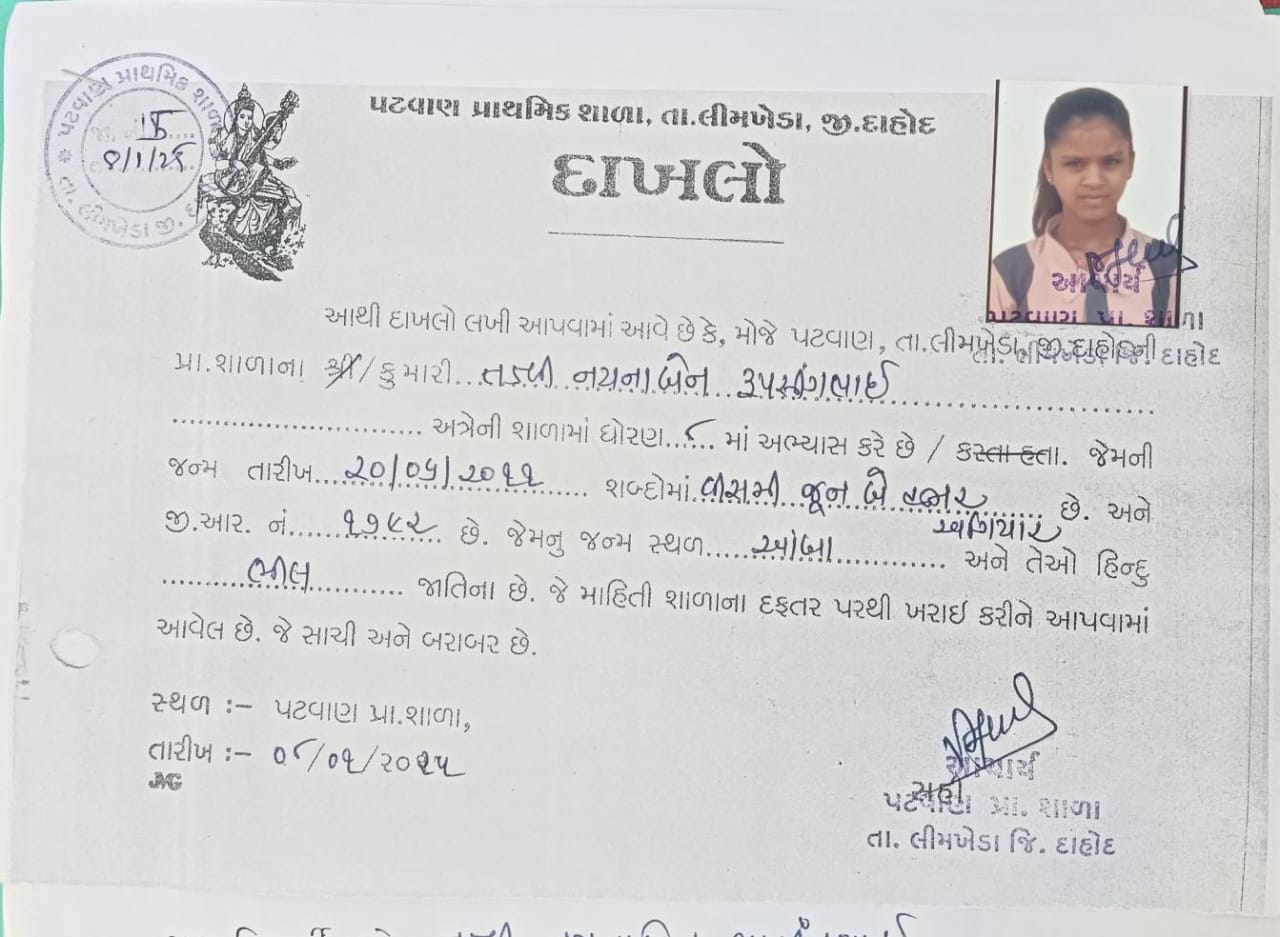 પટવાણ પ્રાથમિક શાળા
તા. લીમખેડા જી. દા
૪/૧/૨૬
પટવાણ પ્રાથમિક શાળા, તા.લીમખેડા, જી.દાહોદ
દાખલો
આચાર્ય
પટવાણ પ્રા. શાળા
જિ. દાહોદ
આથી દાખલો લખી આપવામાં આવે છે કે, મોજે પટવાણ, તા.લીમખેડા, જી.દાહોદની
પ્રા.શાળાના શ્રી/કુમારી...તડવી નયનાબેન રૂપસીંગભાઈ
અત્રેની શાળામાં ધોરણ...૮... માં અભ્યાસ કરે છે / કરતા હતા. જેમની
જન્મ તારીખ...૨૦/૦૬/૨૦૧૧... શબ્દોમાં..વીસમી જૂન બે હજાર... છે. અને
અગિયાર
જી.આર. નં...૧૭૯૨... છે. જેમનુ જન્મ સ્થળ...આંબા... અને તેઓ હિન્દુ
...ભીલ... જાતિના છે. જે માહિતી શાળાના દફતર પરથી ખરાઈ કરીને આપવામાં
આવેલ છે. જે સાચી અને બરાબર છે.
સ્થળ :– પટવાણ પ્રા.શાળા,
તારીખ :– ૦૮/૦૧/૨૦૨૫
JMG
આચાર્ય
સહી
પટવાણ પ્રા. શાળા
તા. લીમખેડા જિ. દાહોદ